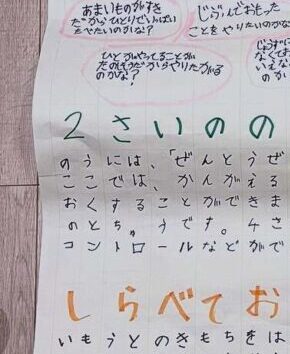 あまいものがすき
だからひとりでいっぱい
たべたいのかな?
じぶんでおもった
ことをやりたいのかな
ひとがやってることが
たのしそうだからやりたがる
のかな?
じょうずに
なくてお
いえな
のか
2さいのの
のうには、「ぜんとうぜ
ここでは、かんがえる
おくすることができま
のとち。うです。4さ
コントロールなどがで
しらべてお
いもうとのきもちをは